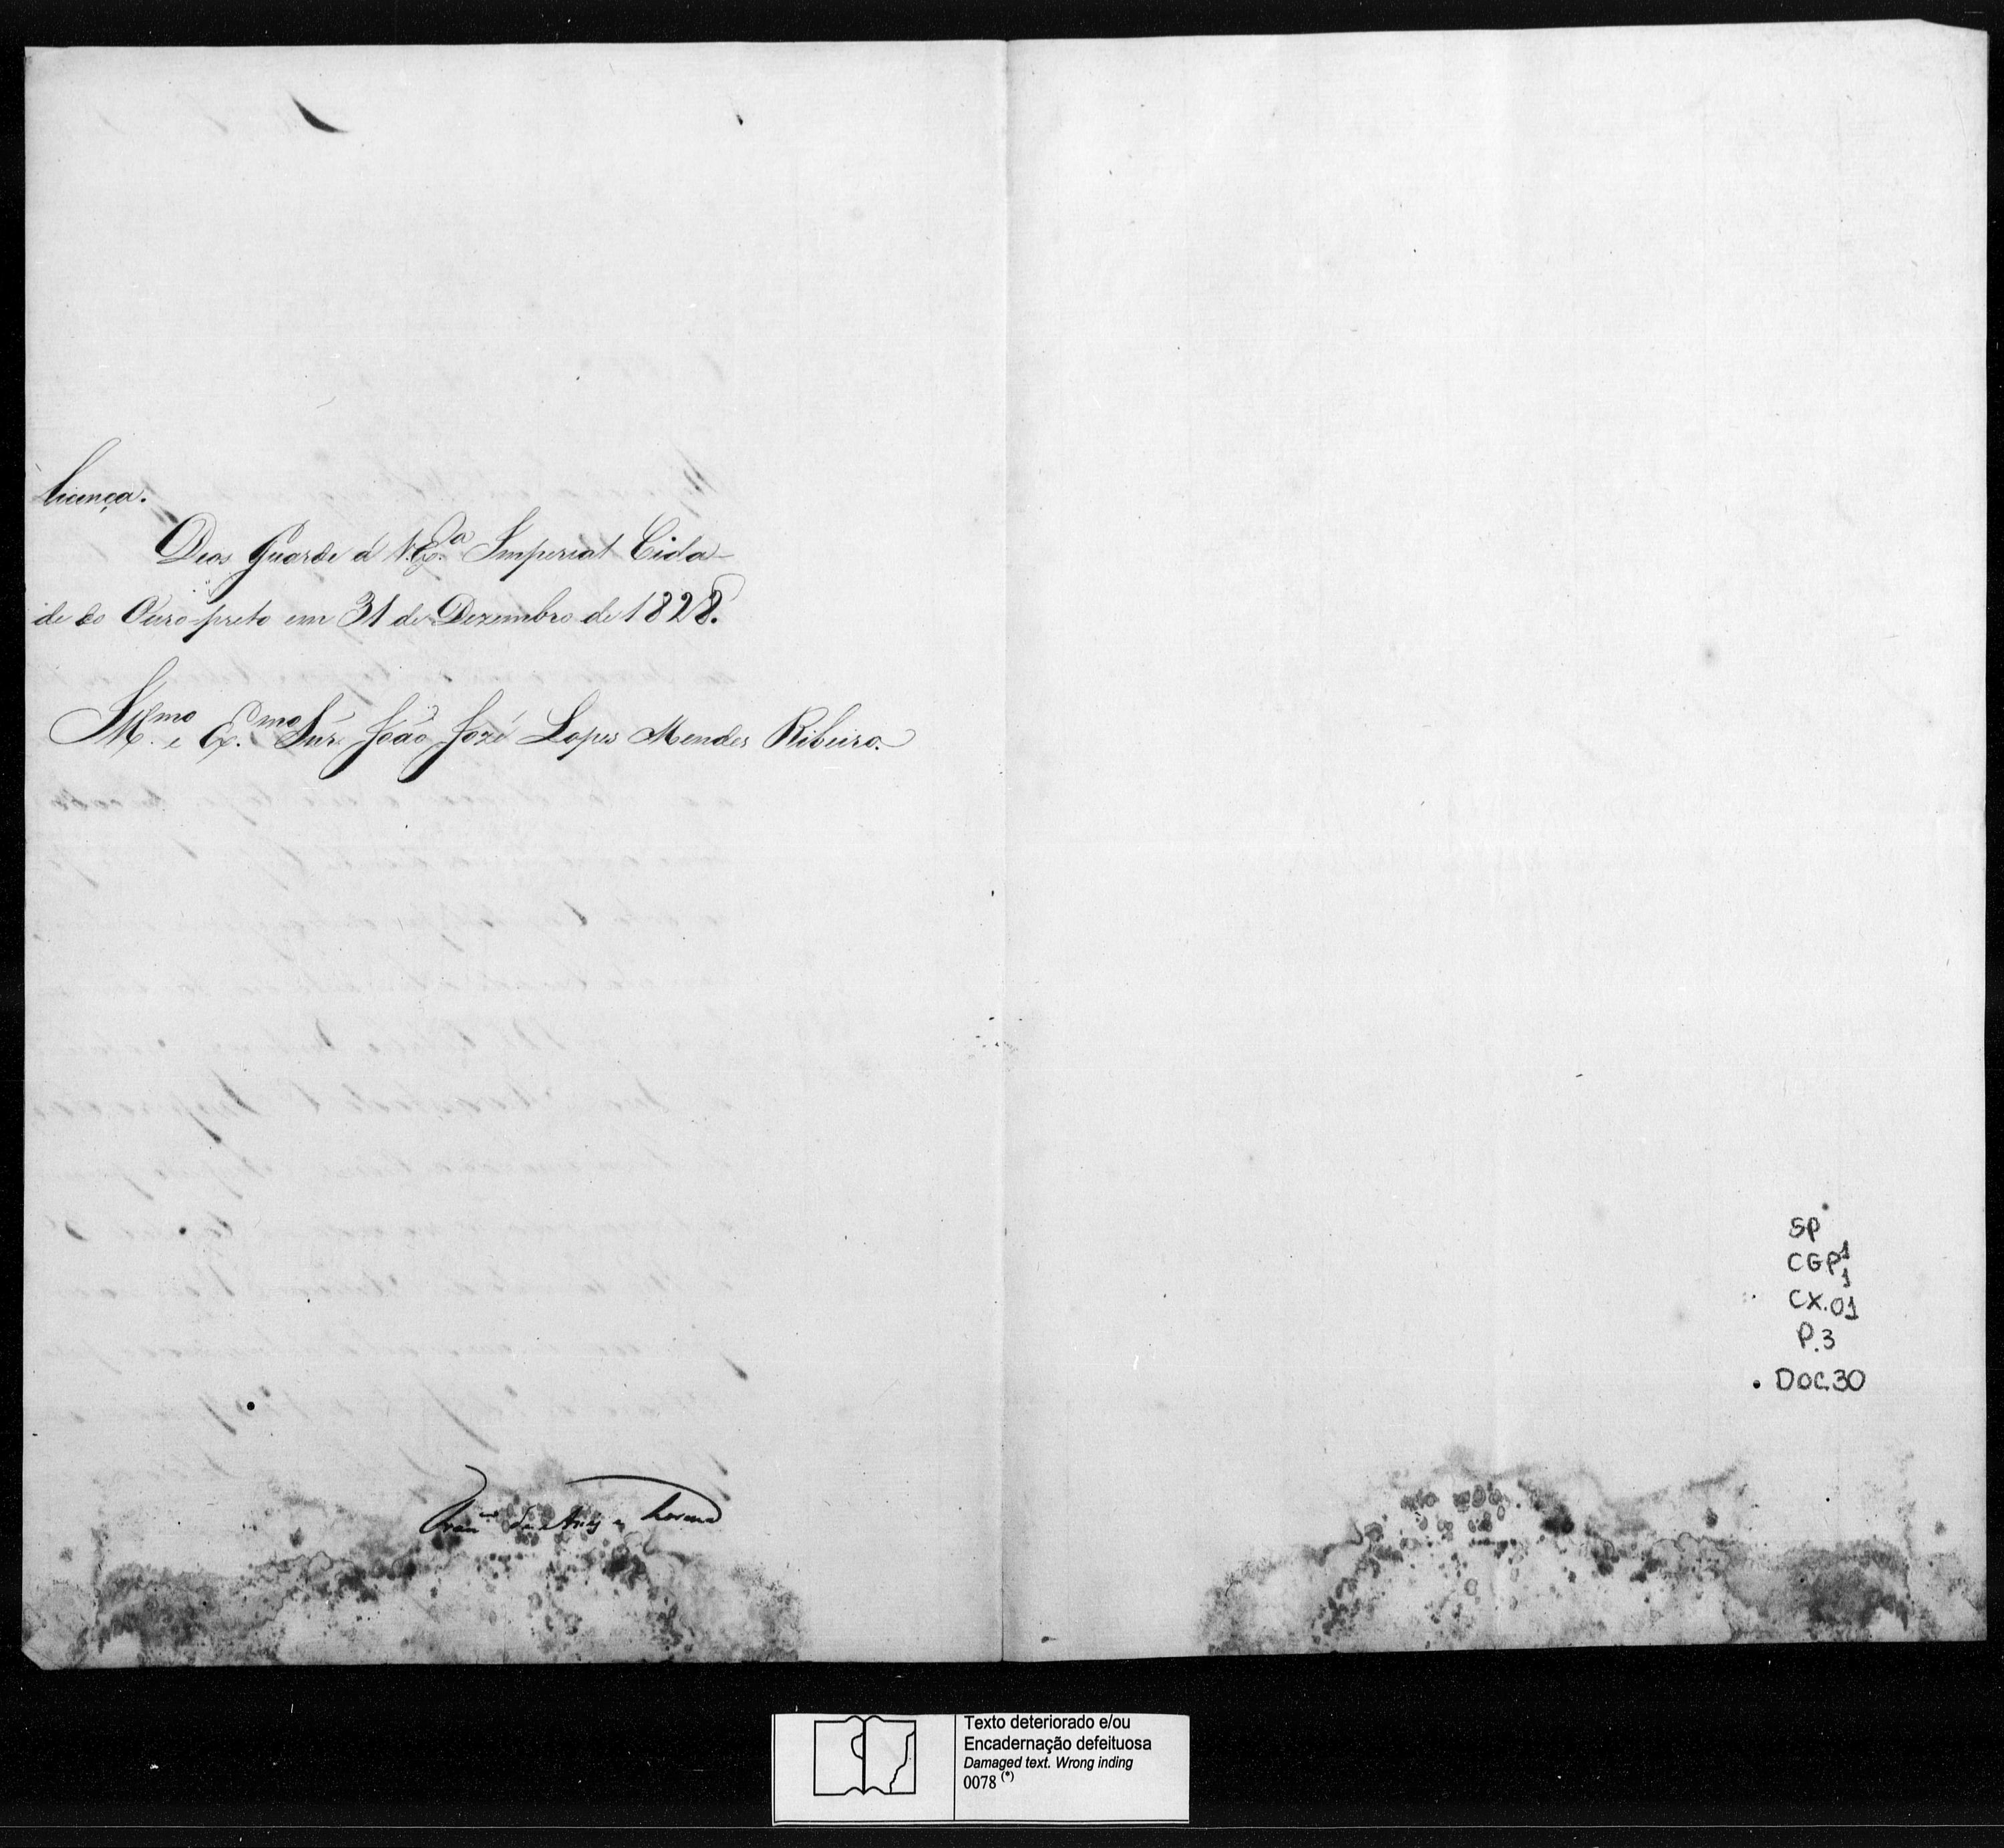 licença.
Deos Guarde á V. Ex.ª Imperial Cida-
de do Ouro-preto em 31 de Dezembro de 1828.
Ill.mo e Ex.mo Snr. João Jozé Lopes Mendes Ribeiro.
SP
CGP 1
1
CX.01
P.3
DOC.30
Texto deteriorado e/ou
Encadernação defeituosa
Damaged text. Wrong inding
0078 (*)